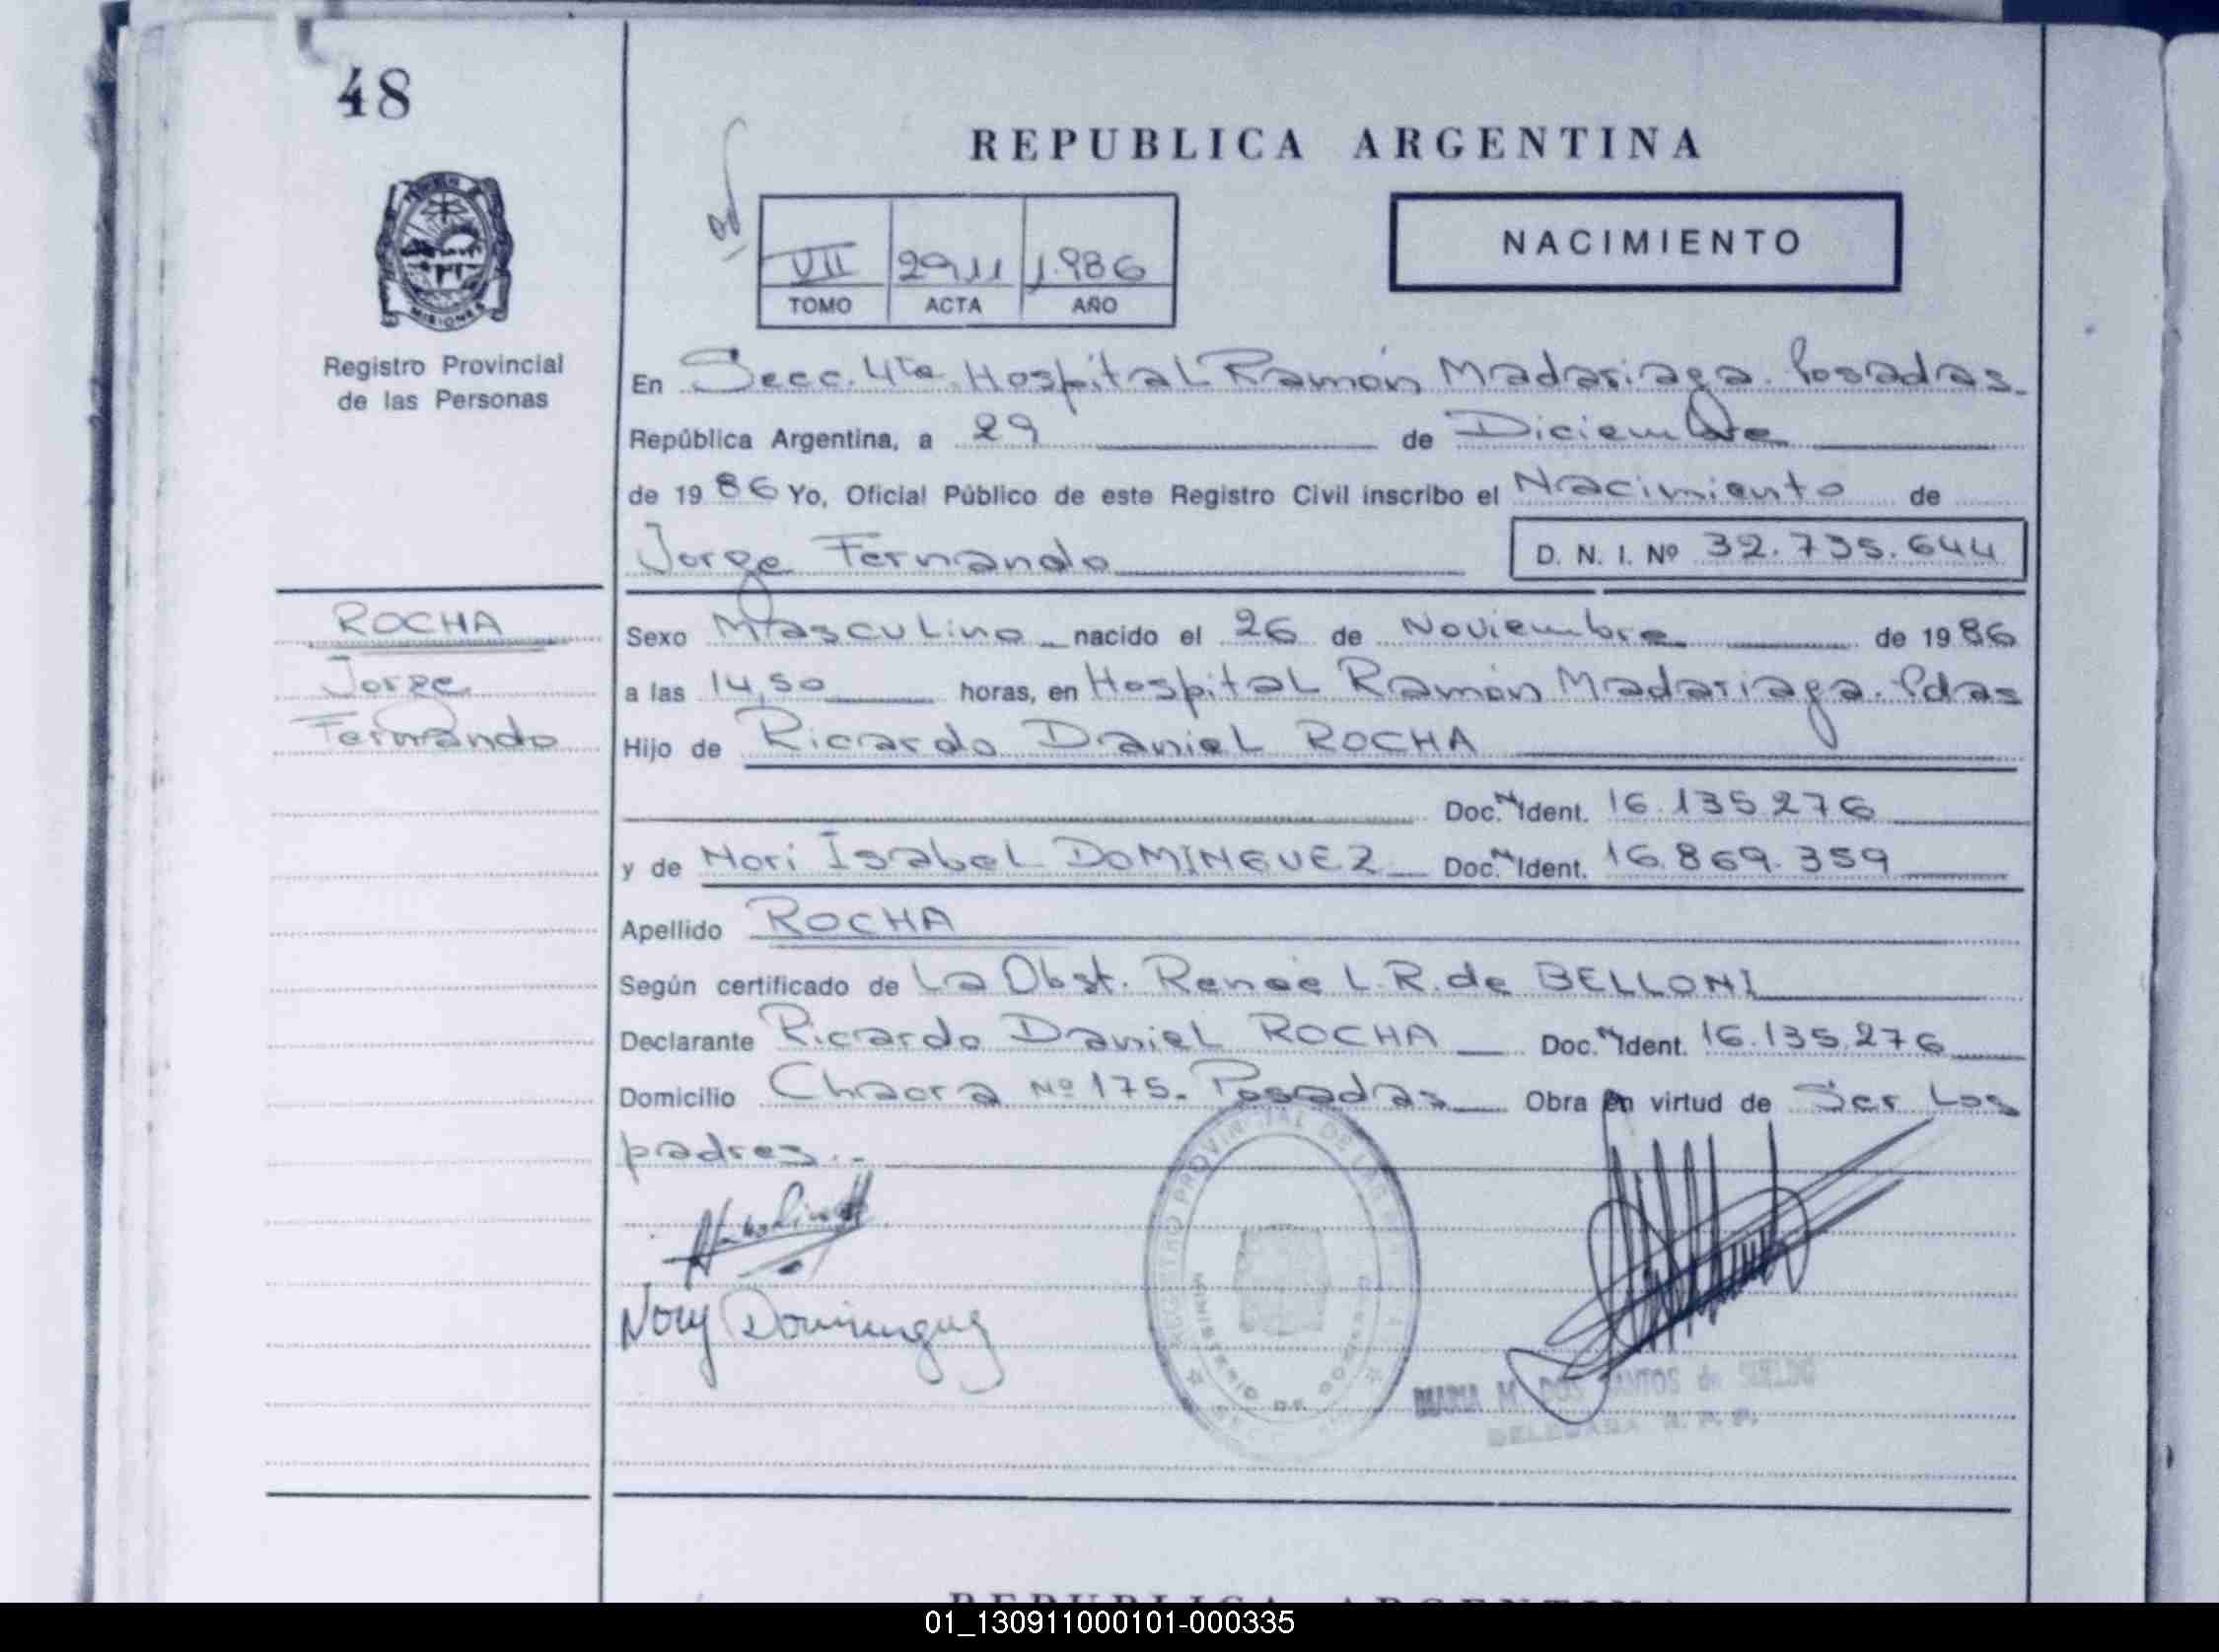 48
REPUBLICA ARGENTINA
VII 2911 1.986
TOMO ACTA AÑO
NACIMIENTO
MISIONES
Registro Provincial
de las Personas
En Secc. 4ta. Hospital Ramón Madariaga. Posadas.
República Argentina, a 29 de Diciembre
de 1986 Yo, Oficial Público de este Registro Civil inscribo el Nacimiento de
Jorge Fernando D. N. I. Nº 32.735.644
ROCHA
Jorge
Fernando
Sexo Masculino nacido el 26 de Noviembre de 1986
a las 14,50 horas, en Hospital Ramón Madariaga. Pdas
Hijo de Ricardo Daniel ROCHA
Doc. N Ident. 16.135.276
y de Nori Isabel DOMINGUEZ Doc. N Ident. 16.869.359
Apellido ROCHA
Según certificado de La Obst. Renée L.R. de BELLONI
Declarante Ricardo Daniel ROCHA Doc. N Ident. 16.135.276
Domicilio Chacra Nº 175. Posadas Obra en virtud de Ser Los
padres.-
Nory Dominguez
REGISTRO PROVINCIAL DE LAS
MINISTERIO DE GOBIERNO
MARIA M. DOS SANTOS de
DELEGADA R. P. P.
REPUBLICA ARGENTINA
01_130911000101-000335